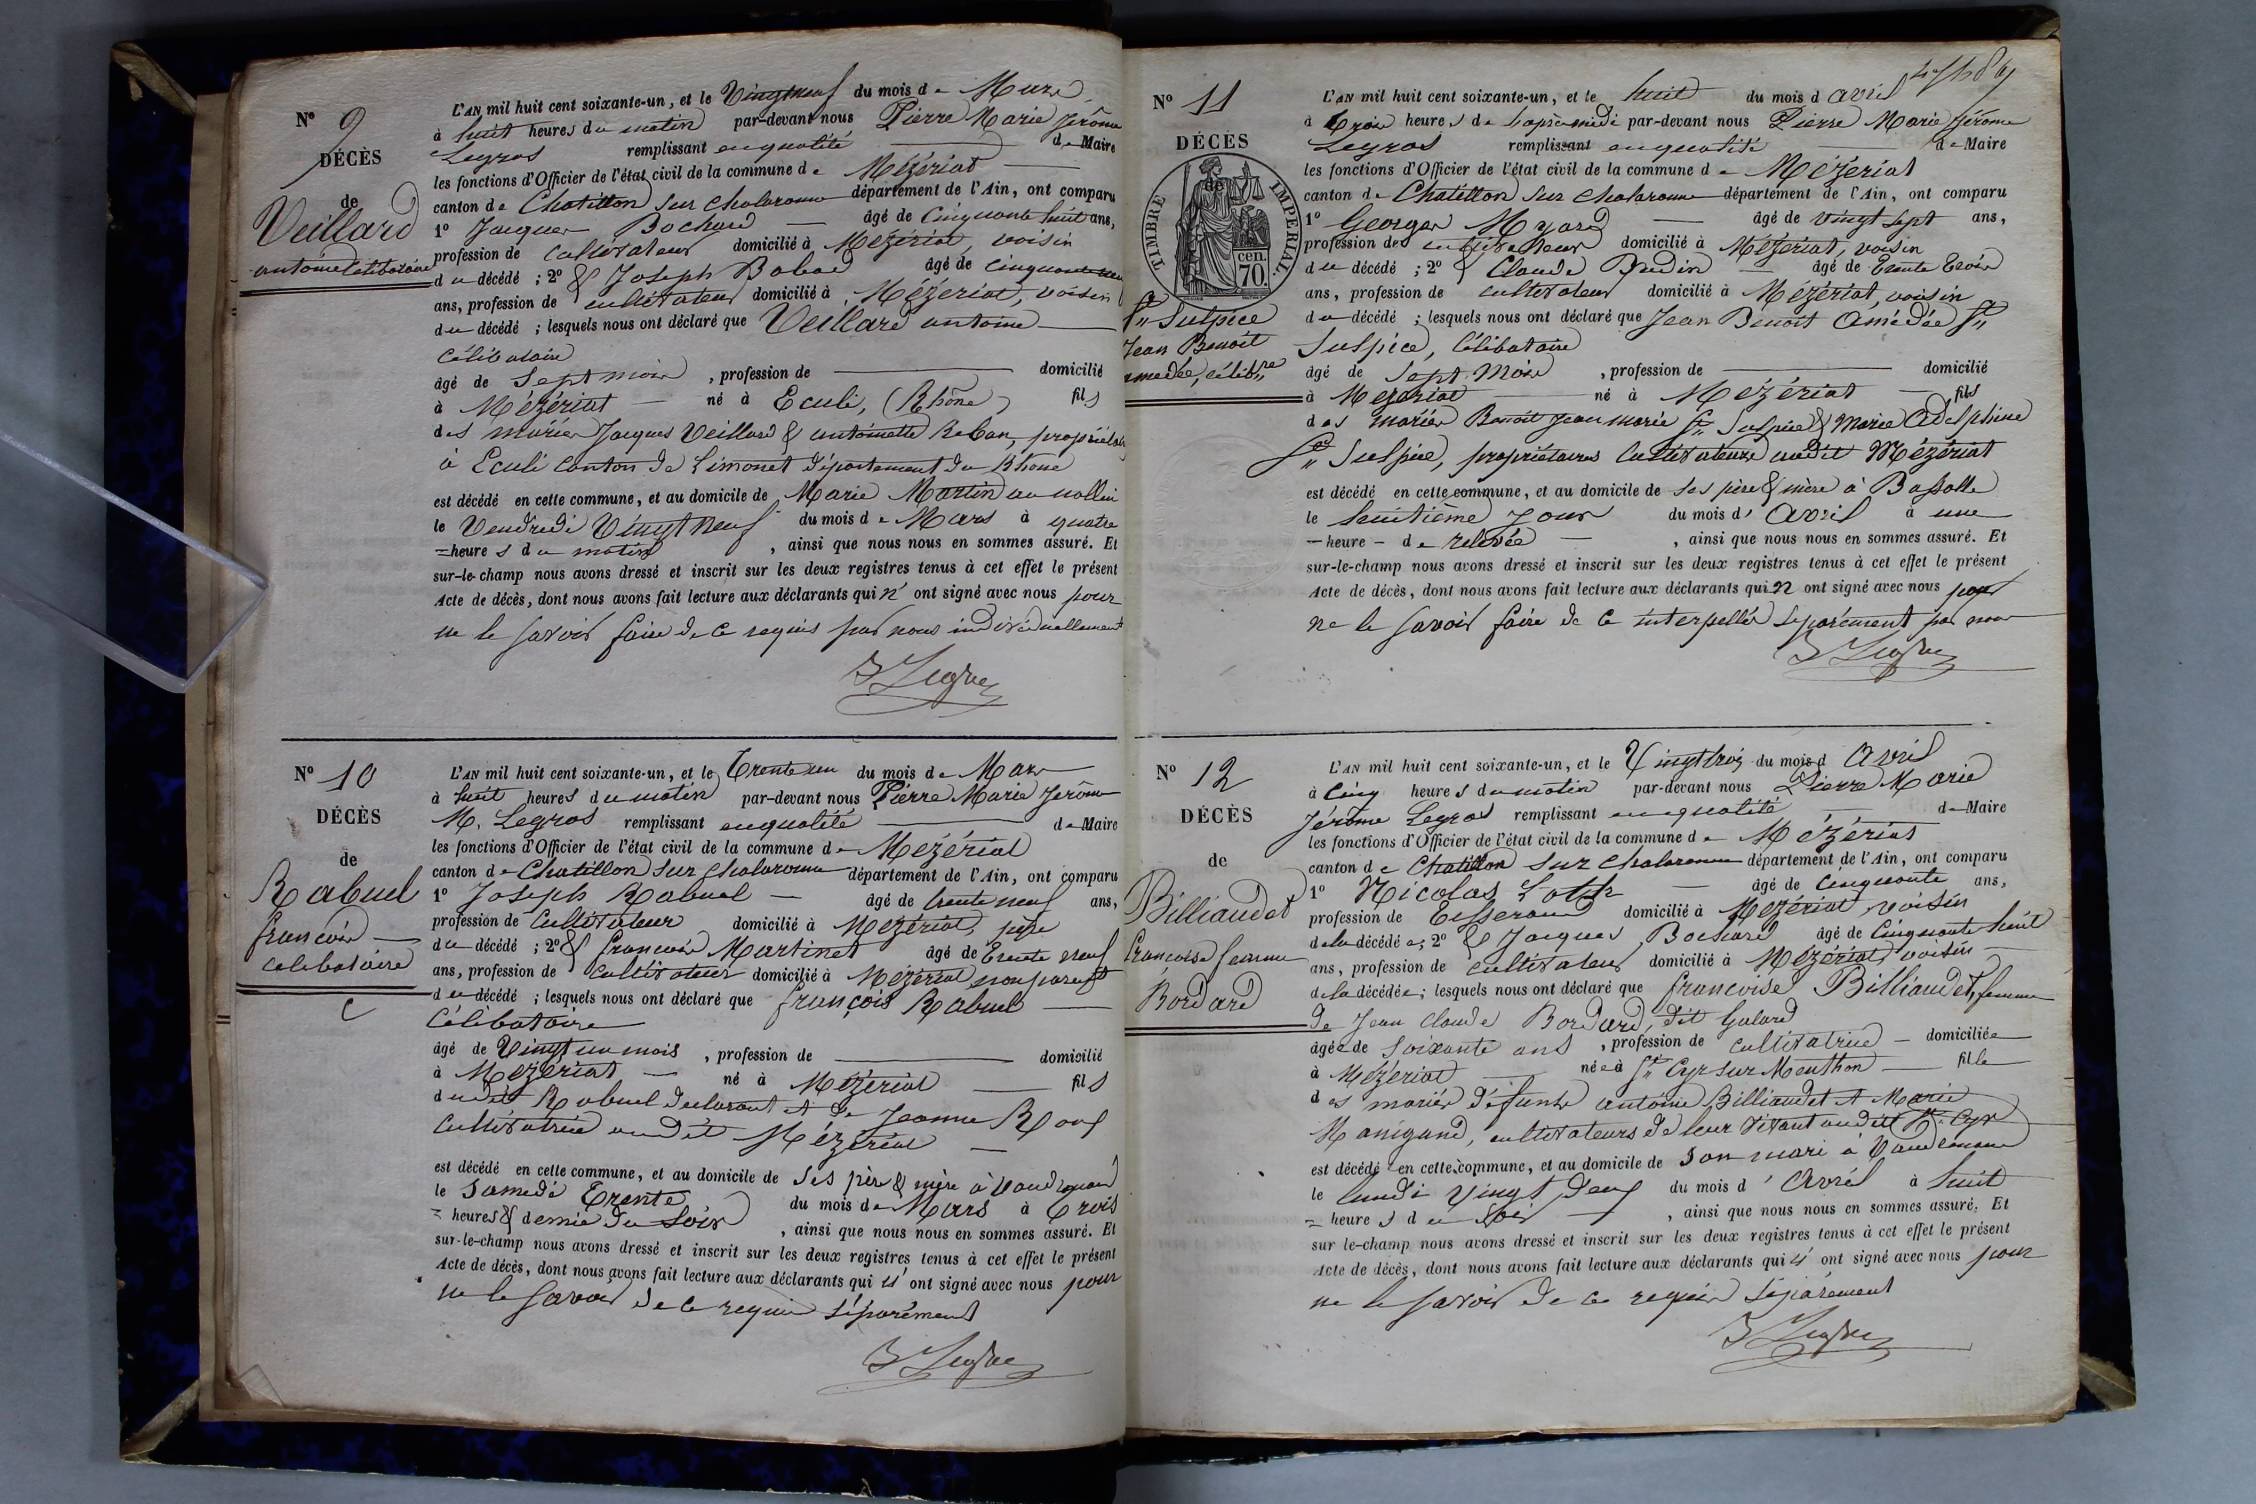 N° 9
DÉCÈS
de
Veillard
antoine Célibataire
L'AN mil huit cent soixante-un, et le Vingt neuf du mois de Mars
à huit heures du matin par-devant nous Pierre Marie Jérôme
Legros remplissant en qualité de Maire
les fonctions d'Officier de l'état civil de la commune de Mézériat
canton de Chatillon sur Chalaronne département de l'Ain, ont comparu
1° Jacques Bochard âgé de Cinquante huit ans,
profession de cultivateur domicilié à Mézériat, voisin
du décédé ; 2° & Joseph Babad âgé de cinquante neuf
ans, profession de cultivateur domicilié à Mézériat, voisin
du décédé ; lesquels nous ont déclaré que Veillard antoine
Célibataire
âgé de Sept mois , profession de domicilié
à Mézériat né à Eculi, (Rhône) fils
des mariés Jacques Veillard & antoinette Raban, propriétaires
à Eculi canton de Limonet département du Rhône
est décédé en cette commune, et au domicile de Marie Martin au nollin
le Vendredi Vingt neuf du mois de Mars à quatre
= heures du matin , ainsi que nous nous en sommes assuré. Et
sur-le-champ nous avons dressé et inscrit sur les deux registres tenus à cet effet le présent
Acte de décès, dont nous avons fait lecture aux déclarants qui n' ont signé avec nous pour
ne le savoir faire de ce requis par nous individuellement
J Legros
N° 10
DÉCÈS
de
Rabuel
francois
celibataire
L'AN mil huit cent soixante-un, et le Trente un du mois de Mars
à huit heures du matin par-devant nous Pierre Marie Jerôme
M. Legros remplissant en qualité de Maire
les fonctions d'Officier de l'état civil de la commune de Mézériat
canton de Chatillon sur Chalaronne département de l'Ain, ont comparu
1° Joseph Rabuel âgé de trente neuf ans,
profession de Cultivateur domicilié à Mézériat, père
du décédé ; 2° & francois Martinet âgé de Trente neuf
ans, profession de Cultivateur domicilié à Mézériat non parent
du décédé ; lesquels nous ont déclaré que françois Rabuel
Célibataire
âgé de Vingt un mois , profession de domicilié
à Mézériat né à Mézériat fils
dudit Rabuel declarant et de Jeanne Roux
Cultivatrice audit Mézériat
est décédé en cette commune, et au domicile de Ses père & mère à Vaudemand
le Samedi Trente du mois de Mars à Trois
= heures & demie du Soir , ainsi que nous nous en sommes assuré. Et
sur-le-champ nous avons dressé et inscrit sur les deux registres tenus à cet effet le présent
Acte de décès, dont nous avons fait lecture aux déclarants qui n' ont signé avec nous pour
ne le savoir de ce requis séparément
J Legros
N° 11
DÉCÈS
de
TIMBRE IMPÉRIAL
70 cen.
St Sulpice
Jean Benoit
amedée, célibre
L'AN mil huit cent soixante-un, et le huit du mois d avril
à Trois heures de l'après-midi par-devant nous Pierre Marie Jérôme
Legros remplissant en qualité de Maire
les fonctions d'Officier de l'état civil de la commune de Mézériat
canton de Chatillon sur Chalaronne département de l'Ain, ont comparu
1° Georges Myard âgé de vingt sept ans,
profession de cultivateur domicilié à Mézériat, voisin
du décédé ; 2° & Claude Brudin âgé de Trente Trois
ans, profession de cultivateur domicilié à Mézériat, voisin
du décédé ; lesquels nous ont déclaré que Jean Benoit Amédée St
Sulpice, Célibataire
âgé de Sept Mois , profession de domicilié
à Mézériat né à Mézériat fils
des mariés Benoit Jean marie St Sulpice & Marie Adelphine
St Sulpice, propriétaires Cultivateurs audit Mézériat
est décédé en cette commune, et au domicile de ses père & mère à Bafolle
le huitième jour du mois d' Avril à une
- heure - de relevée , ainsi que nous nous en sommes assuré. Et
sur-le-champ nous avons dressé et inscrit sur les deux registres tenus à cet effet le présent
Acte de décès, dont nous avons fait lecture aux déclarants qui n ont signé avec nous pour
ne le savoir faire de ce interpellés séparément par nous
J Legros
N° 12
DÉCÈS
de
Billiaudet
francoise femme
Bordard
L'AN mil huit cent soixante-un, et le Vingt trois du mois d Avril
à Cinq heures du matin par-devant nous Pierre Marie
Jérôme Legros remplissant en qualité de Maire
les fonctions d'Officier de l'état civil de la commune de Mézériat
canton de Chatillon sur Chalaronne département de l'Ain, ont comparu
1° Nicolas Loth âgé de Cinquante ans,
profession de Tisserand domicilié à Mézériat, voisin
de la décédée ; 2° & Jacques Bochard âgé de Cinquante huit
ans, profession de cultivateur domicilié à Mézériat, voisin
de la décédée ; lesquels nous ont déclaré que francoise Billiaudet, femme
de Jean Claude Bordard, dit Galard
âgée de Soixante ans , profession de cultivatrice domiciliée
à Mézériat née à St Cyr sur Menthon fille
des mariés défunts antoine Billiaudet et Marie
Manigand, cultivateurs de leur vivant audit St Cyr
est décédé en cette commune, et au domicile de son mari à Vaudemand
le lundi vingt deux du mois d' Avril à huit
= heures du Soir , ainsi que nous nous en sommes assuré. Et
sur le-champ nous avons dressé et inscrit sur les deux registres tenus à cet effet le présent
Acte de décès, dont nous avons fait lecture aux déclarants qui n' ont signé avec nous pour
ne le savoir de ce requis séparément
J Legros